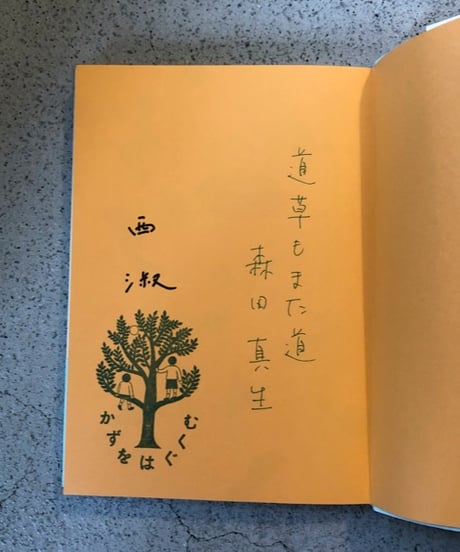 道草もまた道
森田真生
西
淑
かずをはぐくむ